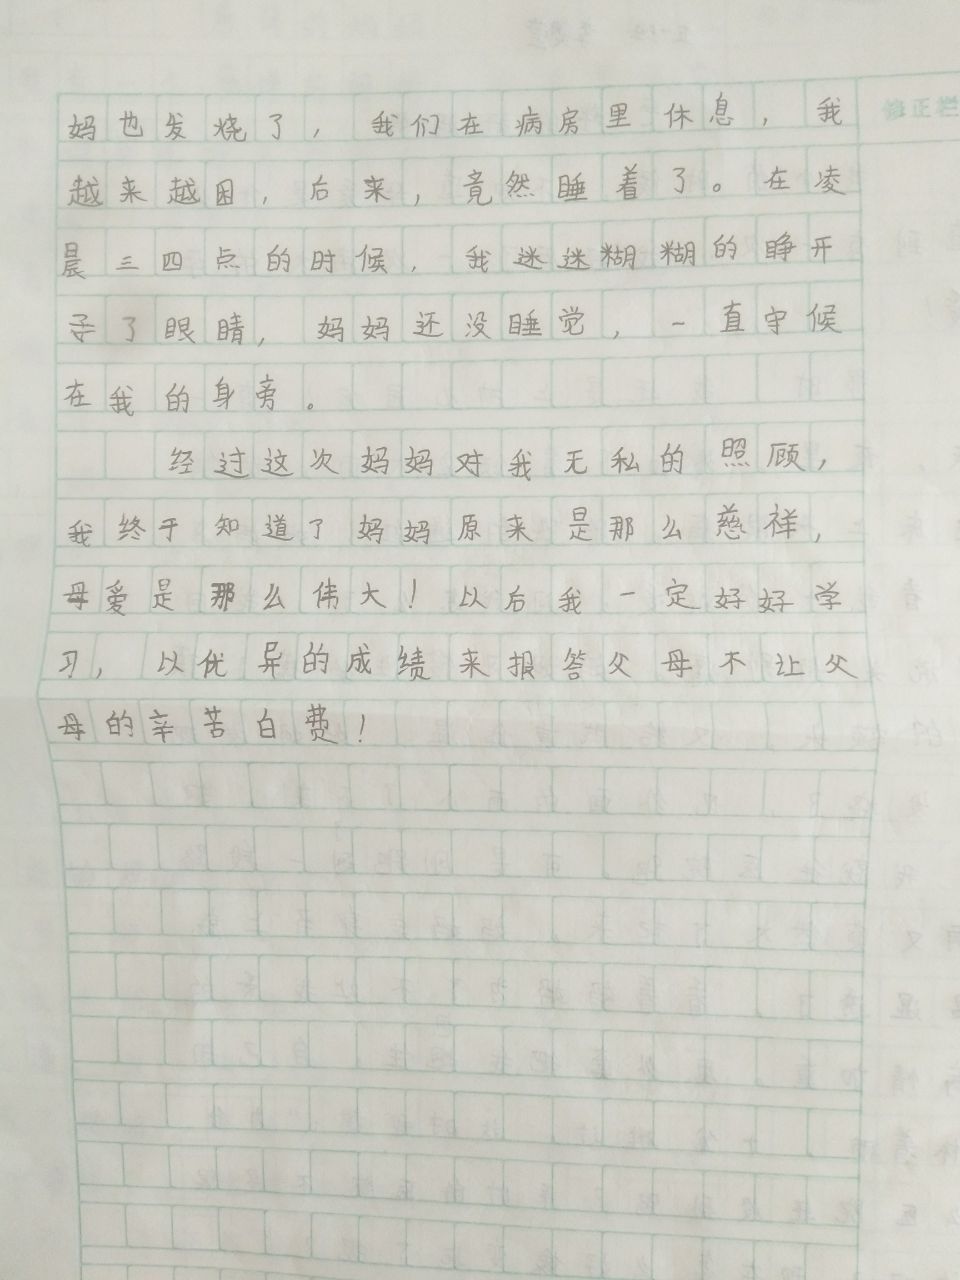 修正栏
妈也发烧了，我们在病房里休息，我
越来越困，后来，竟然睡着了。在凌
晨三四点的时候，我迷迷糊糊的睁开
了眼睛，妈妈还没睡觉，一直守候
在我的身旁。
经过这次妈妈对我无私的照顾，
我终于知道了妈妈原来是那么慈祥，
母爱是那么伟大！以后我一定好好学
习，以优异的成绩来报答父母不让父
母的辛苦白费！